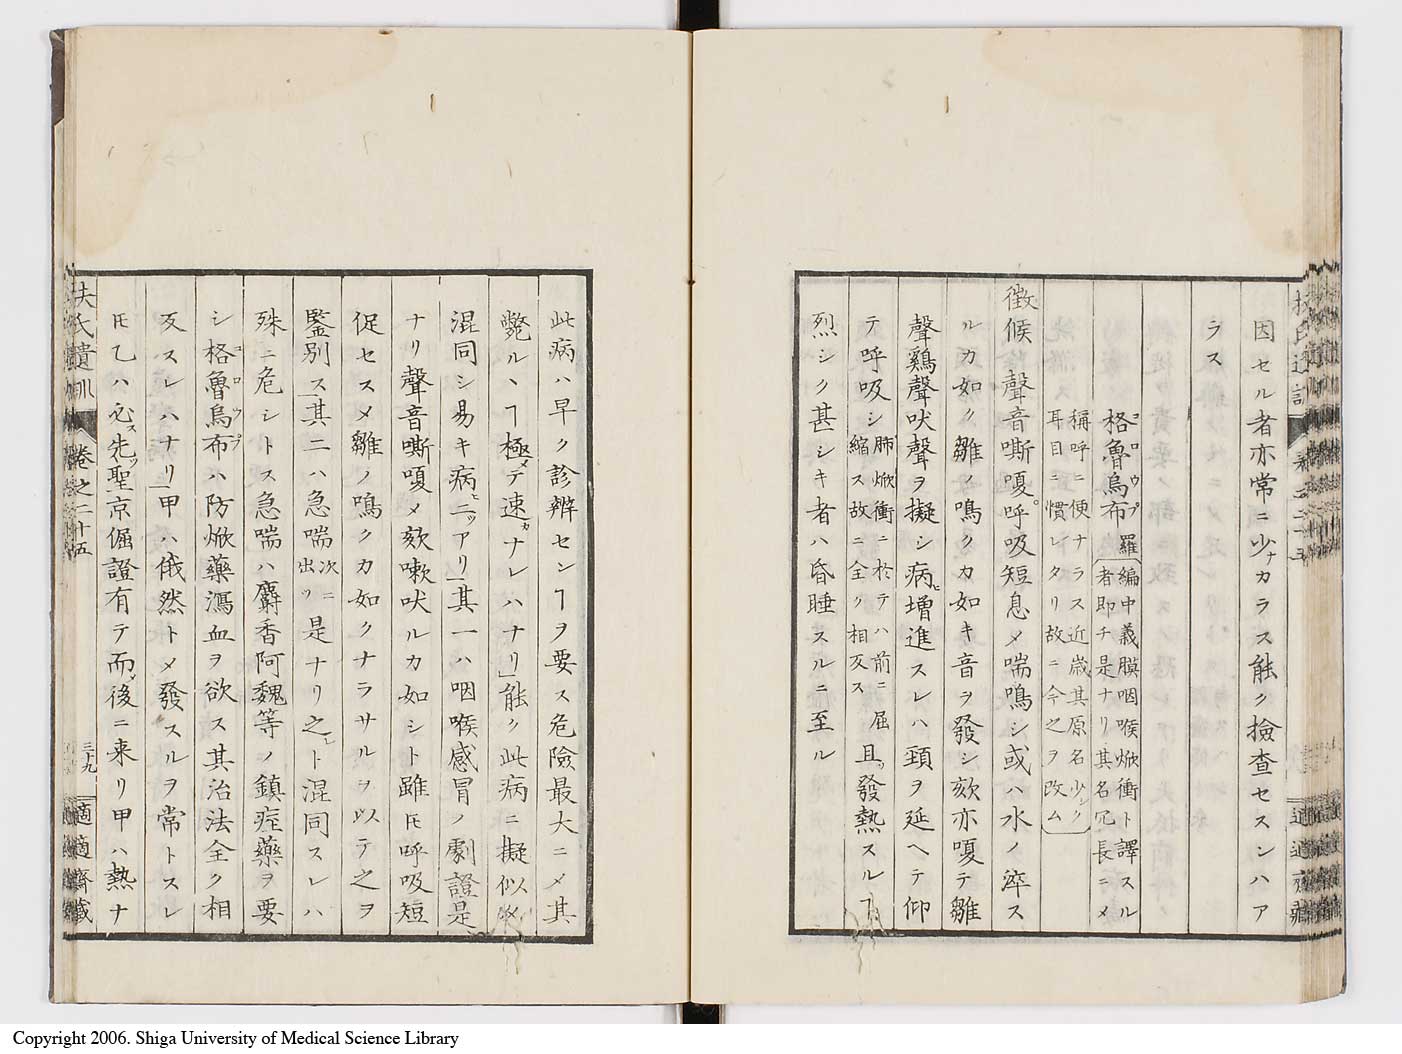 因セル者亦常ニ少ナカラス能ク撿査セスンハア
ラス
格魯烏布
コロウプ
羅
編中義膜咽喉焮衝ト譯スル
者即チ是ナリ其名冗長ニメ
稱呼ニ便ナラス近歲其原名少シク
耳目ニ慣レタリ故ニ今之ヲ改ム
徴候。聲音嘶嗄。呼吸短息メ喘鳴シ或ハ水ノ淬ス
ルカ如ク雛ノ鳴クカ如キ音ヲ發シ欬亦嗄テ雛
聲鷄聲吠聲ヲ擬シ病增進スレハ頸ヲ延ヘテ仰
テ呼吸シ
肺焮衝ニ於テハ前ニ屈
縮ス故ニ全ク相反ス
且ツ發熱スルヿ
烈シク甚シキ者ハ昏睡スルニ至ル
此病ハ早ク診辨センヿヲ要ス危險最大ニメ其
斃ルヽヿ極メテ速カナレハナリ」能ク此病ニ擬似メ
混同シ易キ病ニツアリ」其一ハ咽喉感冒ノ劇證是
ナリ聲音嘶嗄メ欬嗽吠ルカ如シト雖ㇳモ呼吸短
促セスメ雛ノ鳴クカ如クナラサルヲ以テ之ヲ
鑒別ス」其二ハ急喘
次ニ
出ツ
是ナリ之レト混同スレハ
殊ニ危シトス急喘ハ麝香阿魏等ノ鎮痙藥ヲ要
シ格魯烏布ハ防焮藥瀉血ヲ欲ス其治法全ク相
コロウプ
反スレハナリ」甲ハ俄然トメ發スルヲ常トスレ
ㇳモ乙ハ必ス先ツ聖京倔證有テ而メ後ニ来リ甲ハ熱ナ
扶氏遺訓
卷之二十五
三十九
適適齋藏